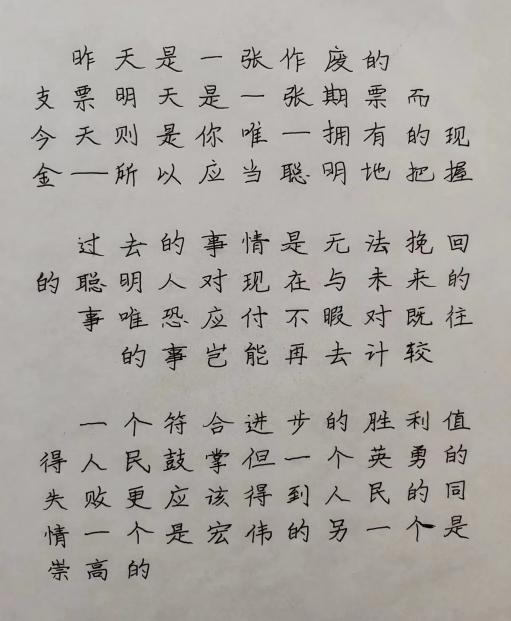 昨天是一张作废的
支票明天是一张期票而
今天则是你唯一拥有的现
金——所以应当聪明地把握
过去的事情是无法挽回
的聪明人对现在与未来的
事唯恐应付不暇对既往
的事岂能再去计较
一个符合进步的胜利值
得人民鼓掌但一个英勇的
失败更应该得到人民的同
情一个是宏伟的另一个是
崇高的